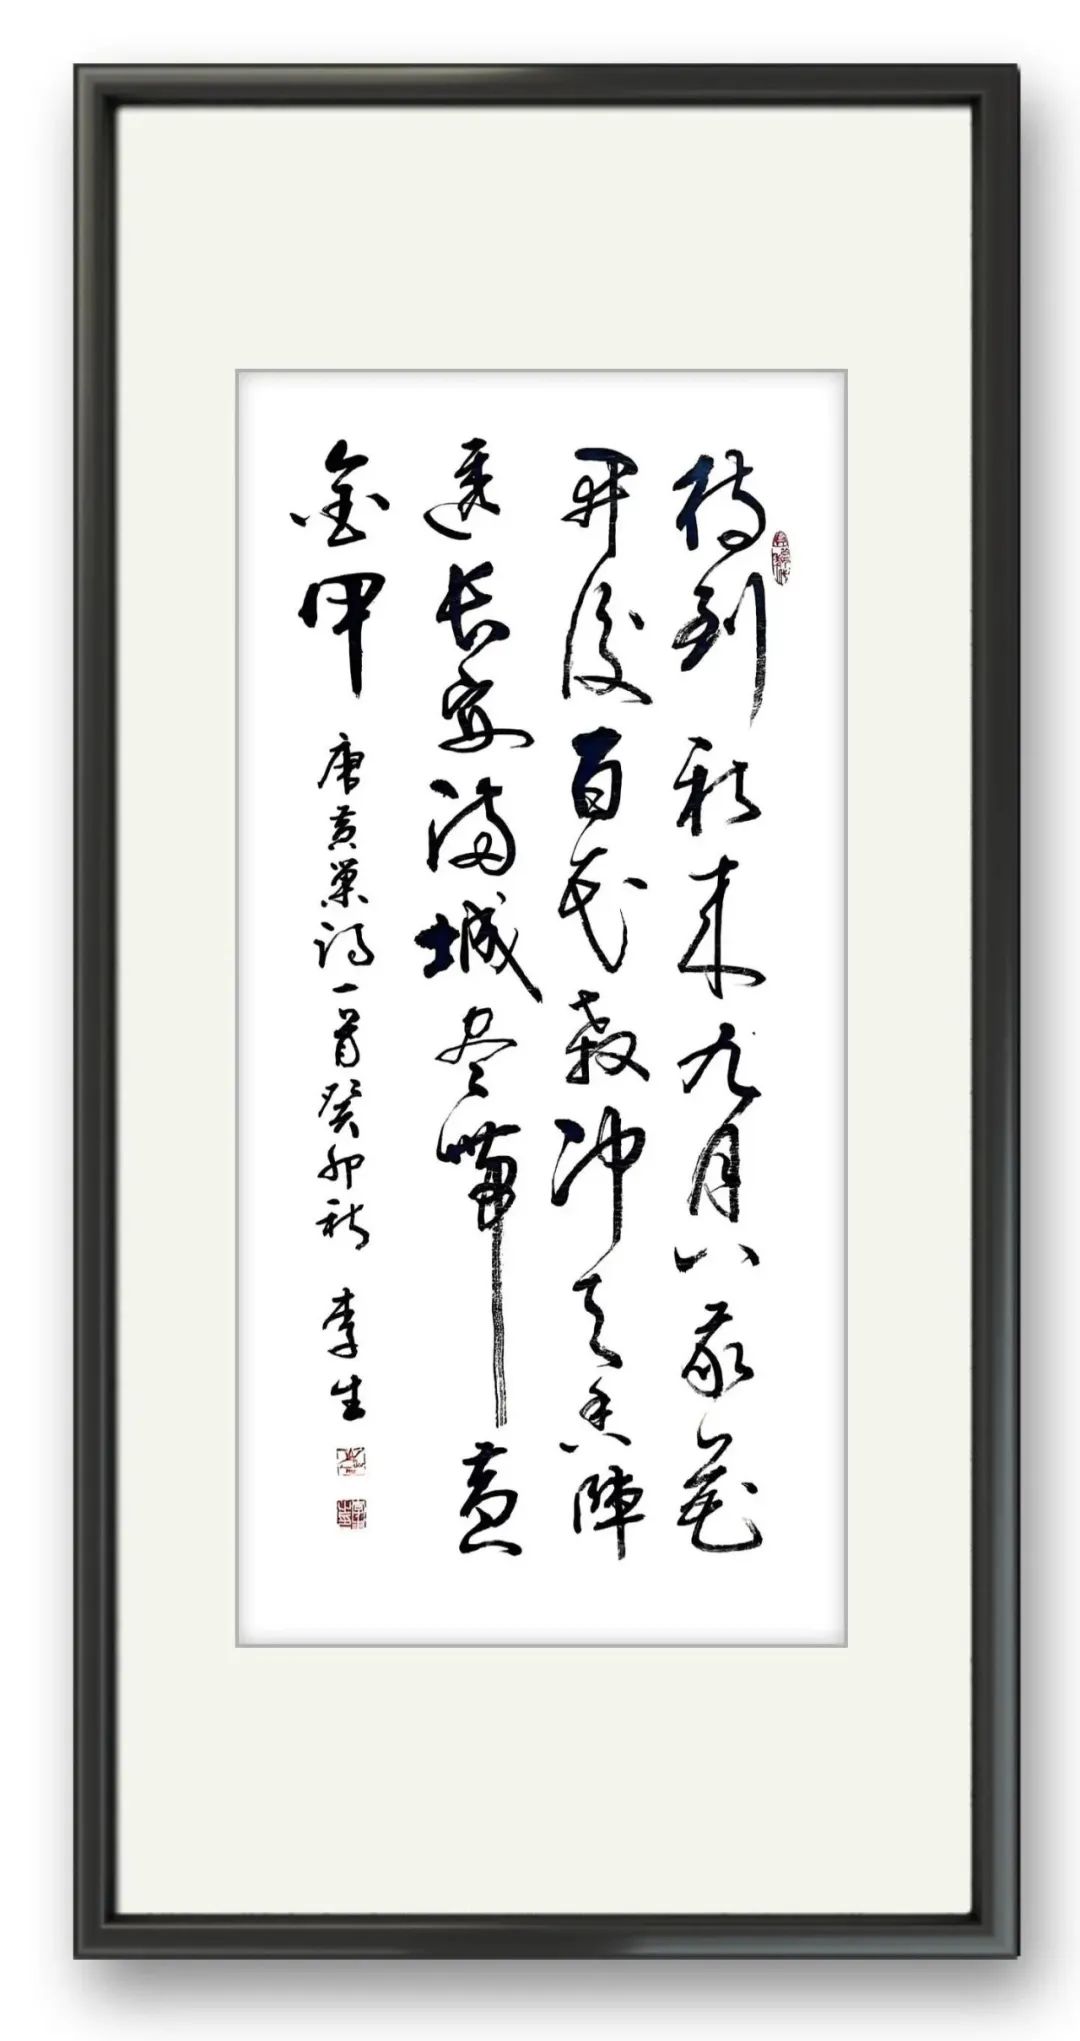 待到秋来九月八我花
开后百花杀冲天香阵
透长安满城尽带黄
金甲
唐黄巢诗一首癸卯秋 李生